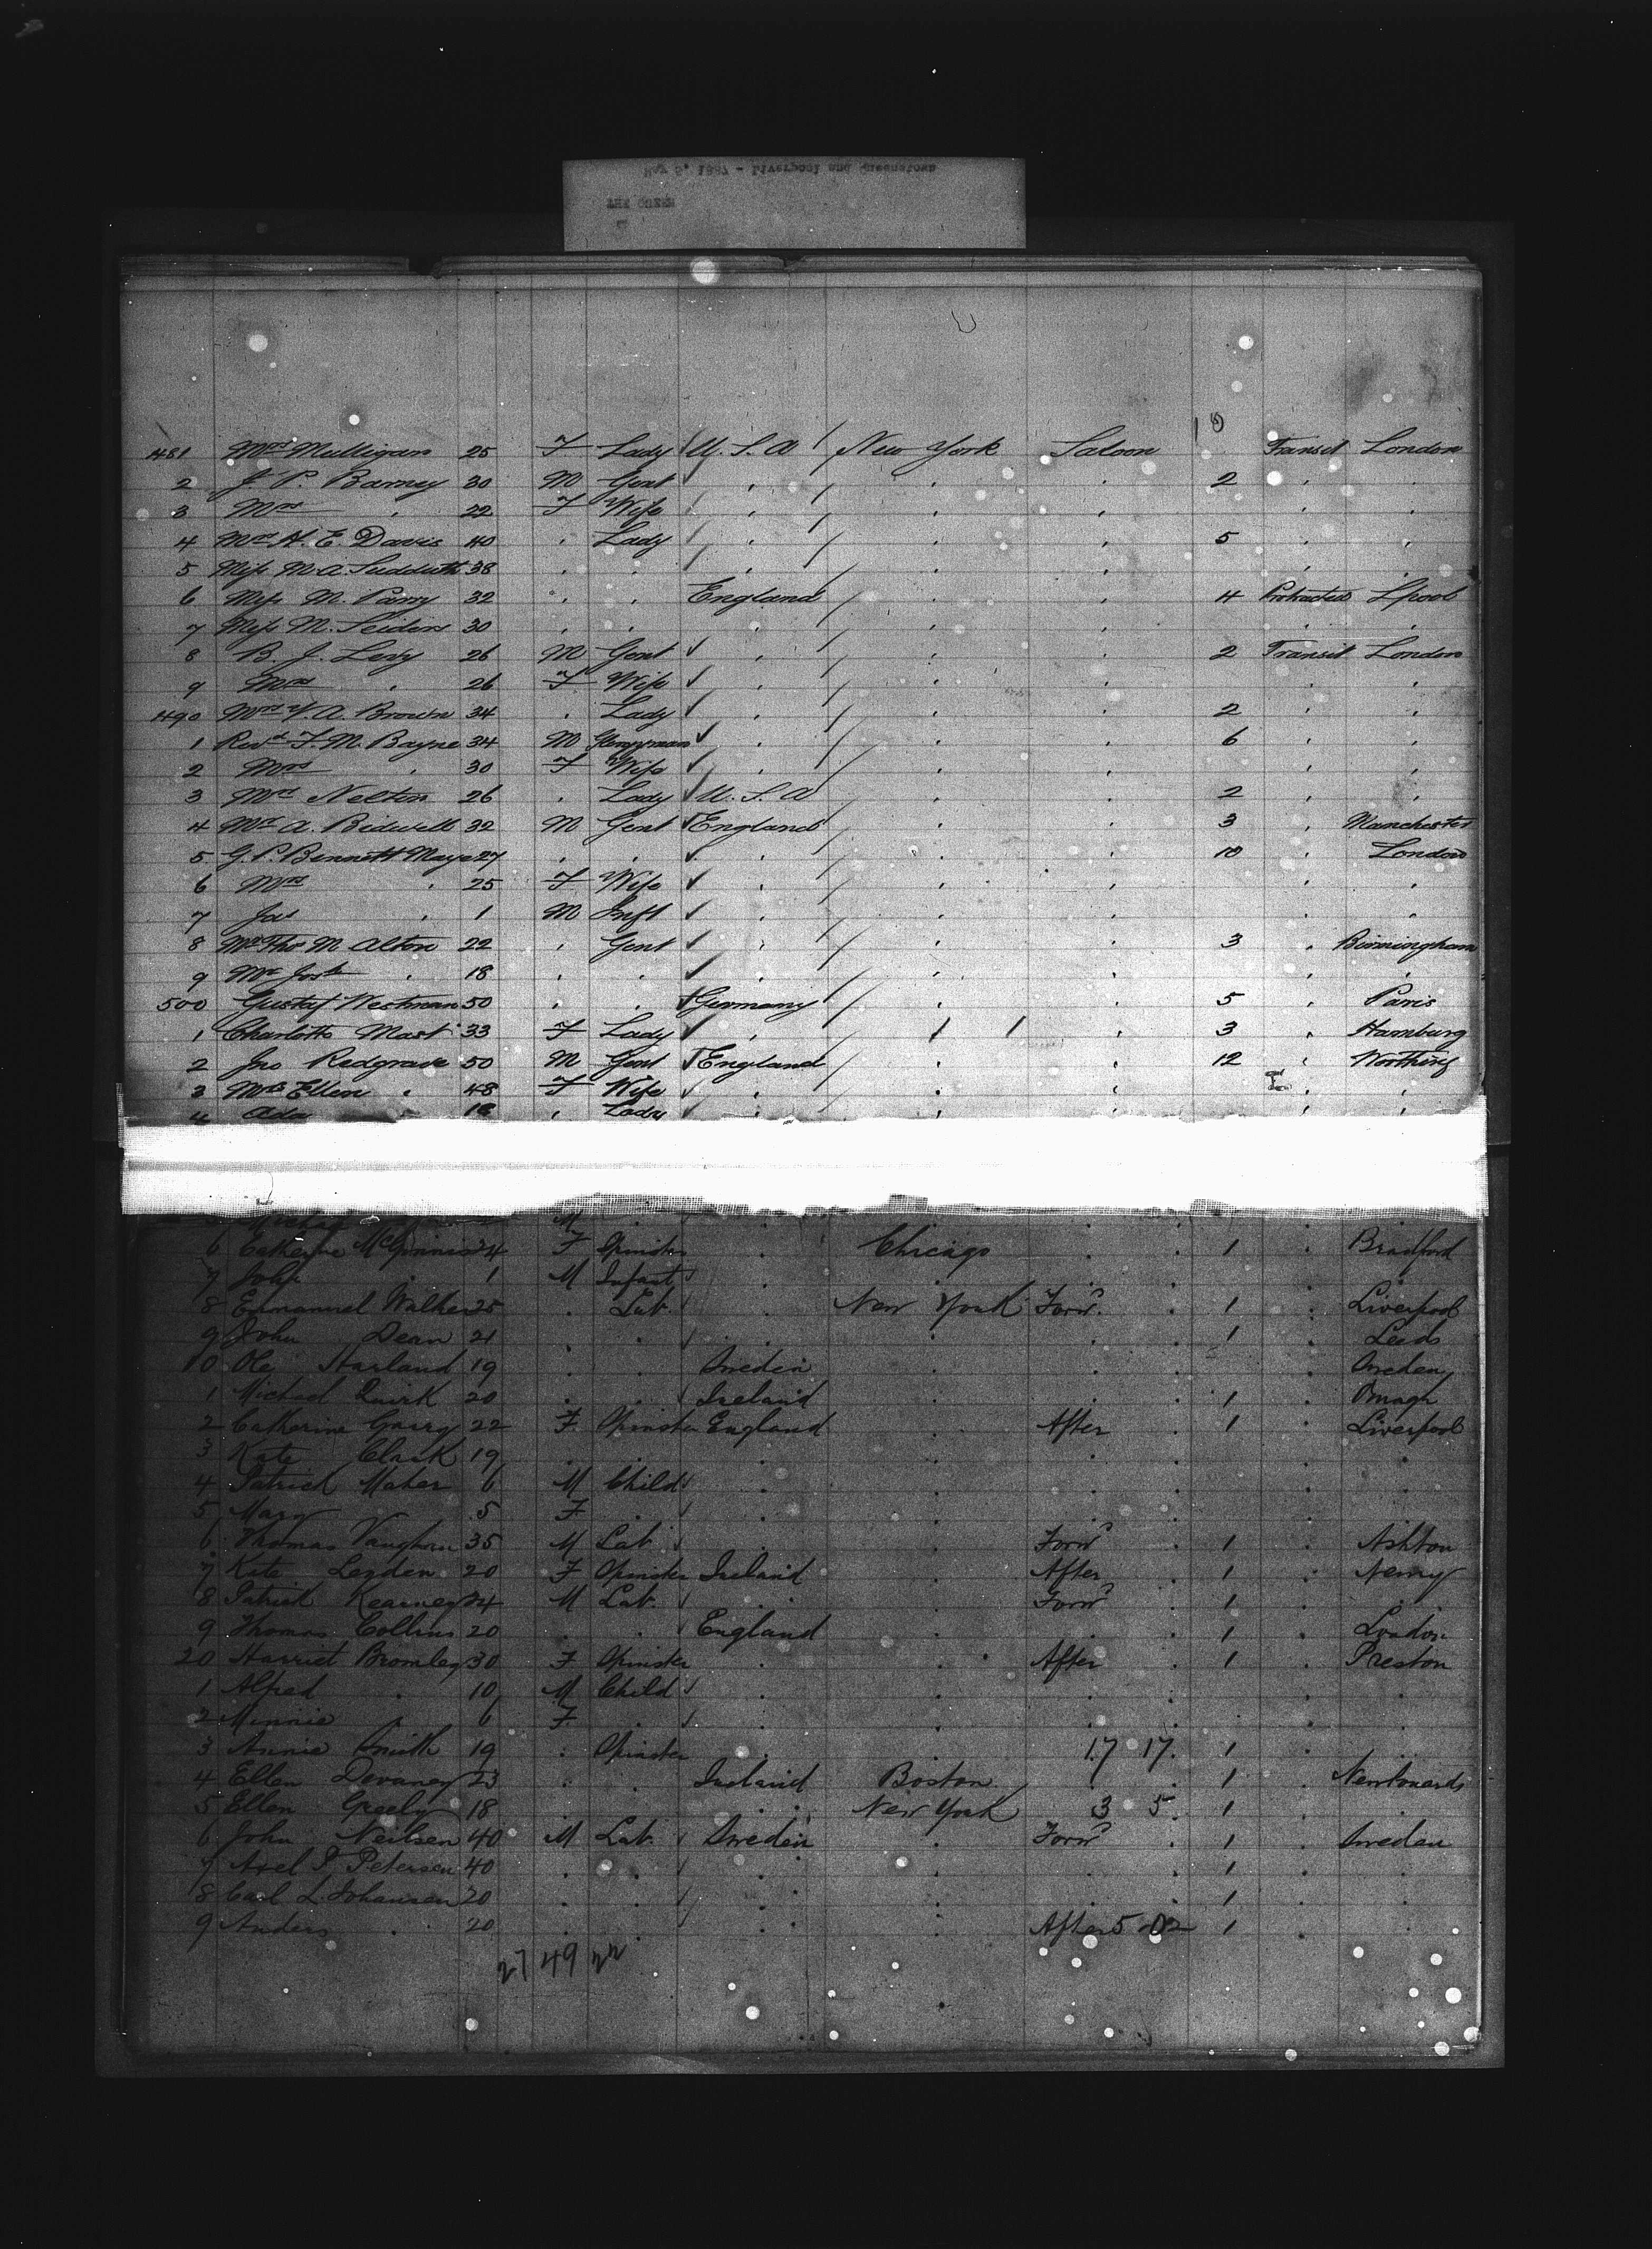 May 5, 1887 - Liverpool and Queenstown
THE QUEEN
10
481 Mrs Mulligan 25 F Lady U.S.A New York Saloon Transit London
2 J. P. Barney 30 M Gent " " " 2 " "
3 Mrs " 22 F Wife " " " " "
4 Mrs H. E. Davis 40 " Lady " " " 5 " "
5 Miss M. A. Sudduth 38 " " " " " " "
6 Miss M. Parry 32 " " England " " 4 Protracted Lpool
7 Miss M. Seiders 30 " " " " " " "
8 B. J. Levy 26 M Gent " " " 2 Transit London
9 Mrs " 26 F Wife " " " " "
490 Mrs V. A. Brown 34 " Lady " " " 2 " "
1 Revd F. M. Bayne 34 M Clergyman " " " 6 " "
2 Mrs " 30 F Wife " " " " "
3 Mrs Nelton 26 " Lady U.S.A " " 2 " "
4 Mr A. Bidwell 32 M Gent England " " 3 " Manchester
5 G. P. Bennett Maye 27 " " " " " 10 " London
6 Mrs " 25 F Wife " " " " "
7 Jas " 1 M Inft " " " " "
8 Mr Thos M Alton 22 " Gent " " " 3 " Birmingham
9 Mr Josh " 18 " " " " " " "
500 Gustaf Westman 50 " " Germany " " 5 " Paris
1 Charlotte Mast 33 F Lady " " " 3 " Hamburg
2 Jno Redgrave 50 M Gent England " " 12 " Worthing
3 Mrs Ellen " 48 F Wife " " " " "
4 Ada 18 " Lady " " " " "
Michael " M " " " " " "
6 Catherine McGinnis 24 F Spinster " Chicago " 1 " Bradford
7 John " 1 M Infant " " " " "
8 Emmanuel Walker 25 " Lab. " New York Forwd. 1 " Liverpool
9 John Dean 21 " " " " " 1 " Leeds
10 Ole Harland 19 " " Sweden " " " Sweden
1 Michael Quirk 20 " " Ireland " " 1 " Omagh
2 Catherine Garry 22 F. Spinster England " After 1 " Liverpool
3 Kate Clark 19 " " " " " " "
4 Patrick Maher 6 M Child " " " " "
5 Mary " 5 F " " " " " "
6 Thomas Vaughan 35 M Lab " " Forwd 1 " Ashton
7 Kate Leyden 20 F Spinster Ireland " After 1 " Newry
8 Patrick Kearney 24 M Lab. " " Forwd 1 " "
9 Thomas Collins 20 " " England " " 1 " London
20 Harriet Bromley 30 F Spinster " " After 1 " Preston
1 Alfred " 10 M Child " " " " "
2 Minnie " 6 F. " " " " " "
3 Annie Smith 19 " Spinster " " 17 17. 1 "
4 Ellen Devaney 23 " " Ireland Boston " 1 " Newtonards
5 Ellen Greely 18 " " " New York 3 5. 1 " "
6 John Neilsen 40 M Lab. Sweden " Forwd 1 " Sweden
7 Axel P. Petersen 40 " " " " " 1 " "
8 Carl L. Johansen 20 " " " " " 1 " "
9 Anders " 20 " " " " After 5 1 " "
27 49 22